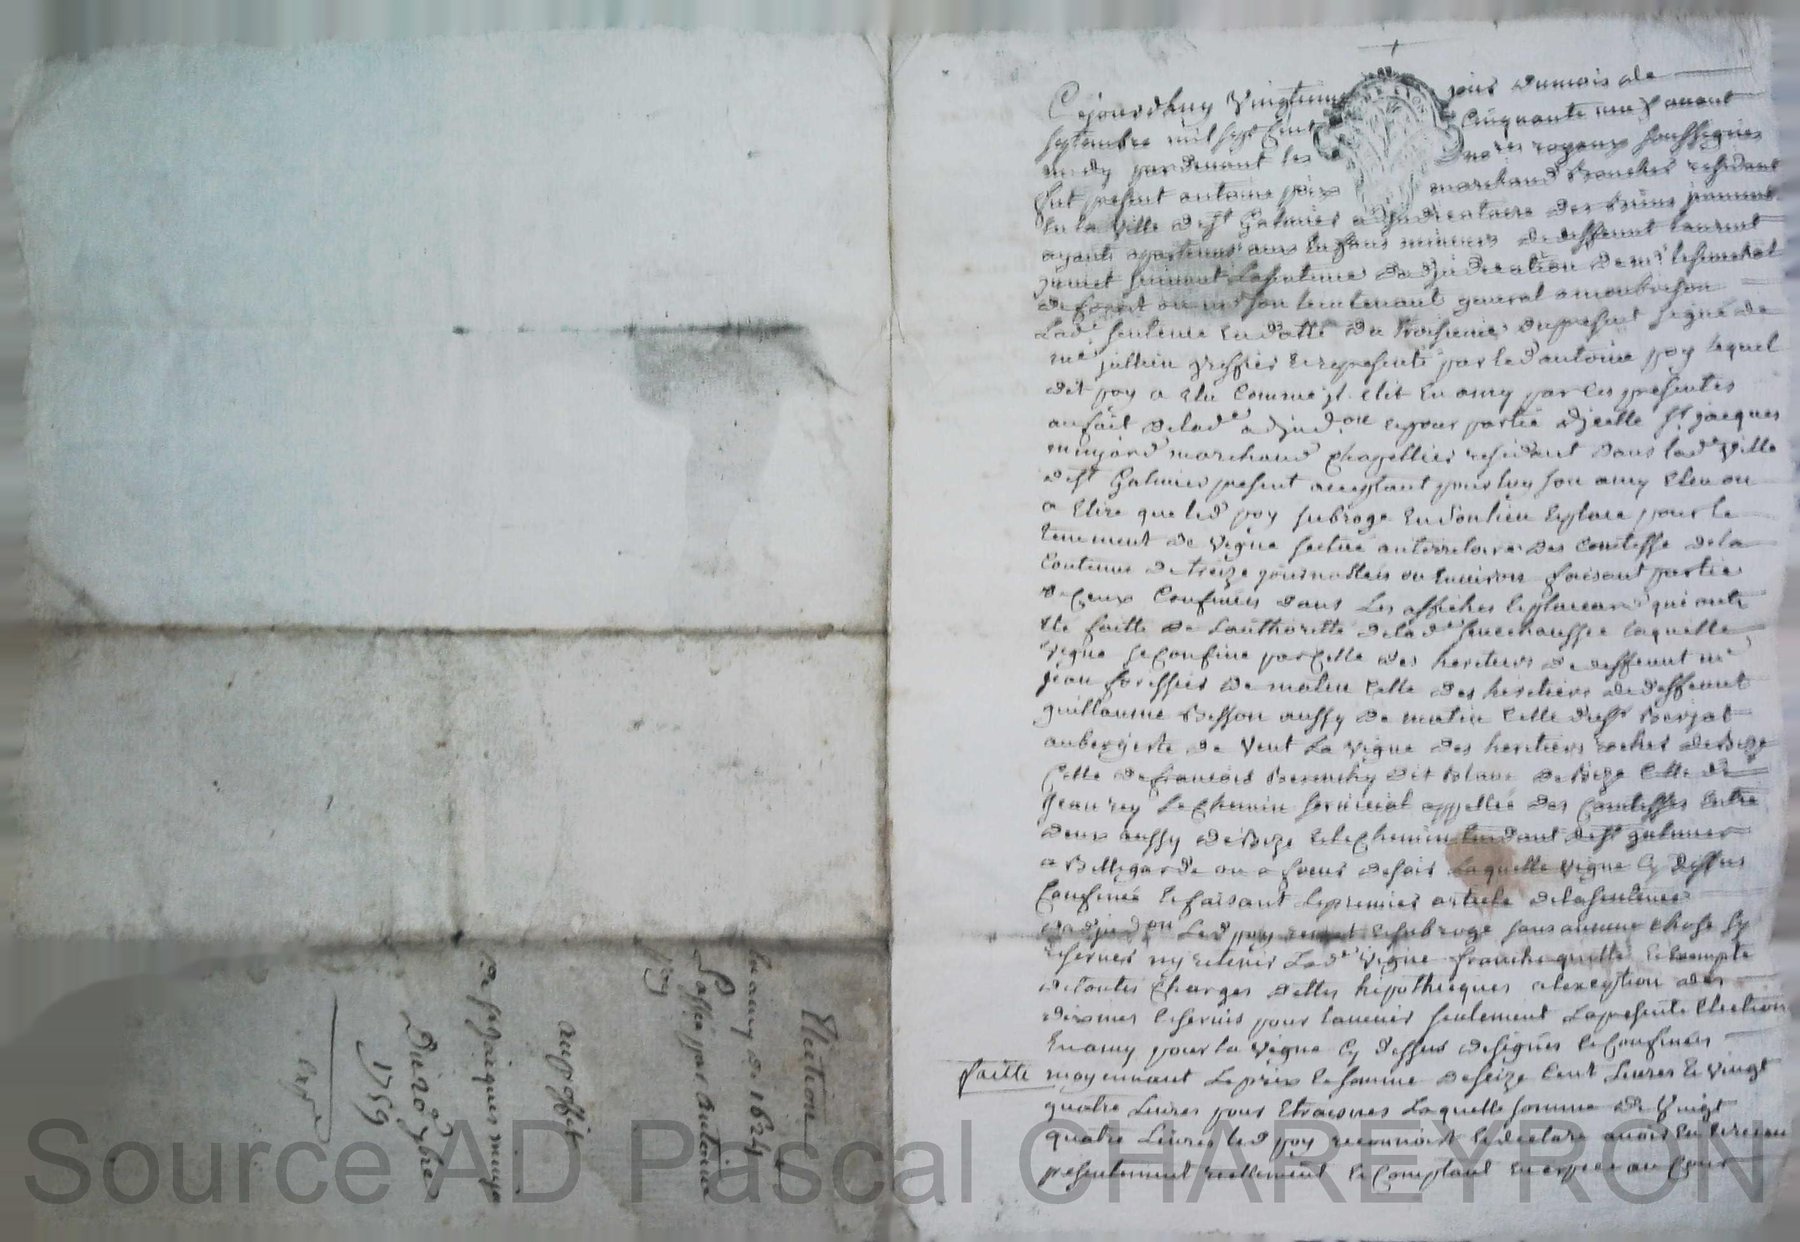 Cejourdhuy Vingtieme jour dumois de
Septembre mil sept Cent Cinquante neuf avant
midy pardevant les no.res royaux soussignés
fut present antoine poix marchand Boucher residant
En la Ville de St Galmier adjudicataire des Biens
ayants apartenus aux Enfans mineurs de deffunt laurent
suivant La sentence dadjudication de mr le senechal
de forest ou mr son lieutenant general a montbrison
Lade sentence En datte du troisieme du present signé de
me jullien greffier Et representé par led antoine poy lequel
dit poy a Elu Comme il Elit En amy par Ces presentes
au fait de lade adjudon Et pour partie dicelle Sr jacques
marchand Chapellier residant dans lade Ville
de St Galmier present acceptant pour luy son amy Eleu ou
a Elire que led poy subroge En son lieu Et place pour le
tenement de Vigne scitué au territoire des Comtesse de la
Contenue de treize journallées ou Environ faisant partie
de Ceux Confinés dans Les affiches Et placards qui ont
Eté faitte de Lauthorité de lade senechaussée laquelle
Vigne se Confine par Celle des heritiers de deffunt me
jean forissier de matin Celle des heritiers de deffunt
guillaume Besson aussy de matin Celle du Sr Berjat
aubergiste de Vent La Vigne des heritiers rocher de Bize
Celle de francois dit Blanc de Bize Celle de
jean rey Le Chemin servicial appellée des Comtesses Entre
deux aussy de Bize Et le Chemin tendant de St galmier
a Bellegarde ou a feurs de soir Laquelle Vigne Cy dessus
Confinée Et faisant Le premier article de la sentence
dadjudon Led poy remet Et subroge sans aucune Chose sy
reserver ny retenir Lade Vigne franche quitte Et Exempte
de toutes Charges dettes hipotheques a lexception des
dixmes Et servis pour lavenir seulement La presente Election
En amy pour la Vigne Cy dessus designée Et Confinée
faitte moyennant Le prix Et somme de seize Cent Livres Et Vingt
quatre Livres pour Etraines Laquelle somme de Vingt
quatre Livres led poy reconnoit Et declare avoir Eu Et receu
presentement reellement Et Comptant En especes au Cours
Election
En amy de 1624 ll
Passée par Antoine
poy
au proffit
de Sr Jacques
Du 20e 7bre
1759
Source AD Pascal CHAREYRON